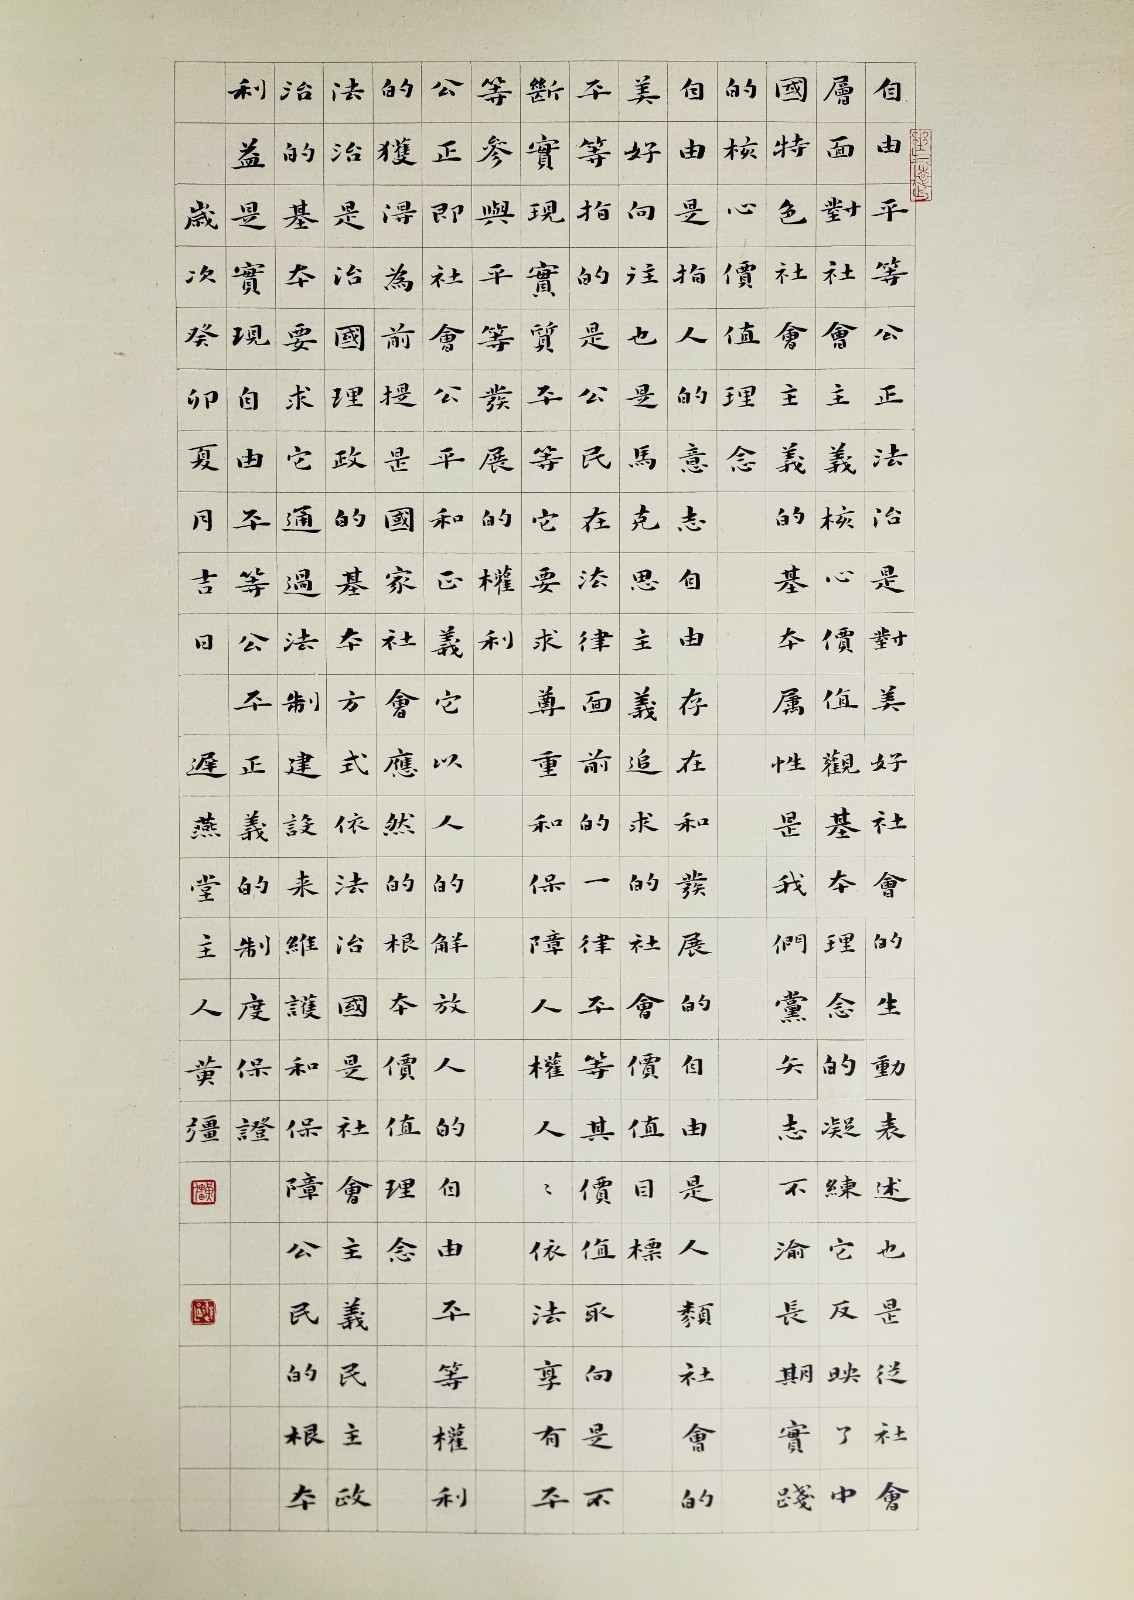 自由平等公正法治是對美好社會的生動表述也是從社會
層面對社會主義核心價值觀基本理念的凝練它反映了中
國特色社會主義的基本屬性是我們黨矢志不渝長期實踐
的核心價值理念
自由是指人的意志自由存在和發展的自由是人類社會的
美好向往也是馬克思主義追求的社會價值目標
平等指的是公民在法律面前的一律平等其價值取向是不
斷實現實質平等它要求尊重和保障人權人〻依法享有平
等參與平等發展的權利
公正即社會公平和正義它以人的解放人的自由平等權利
的獲得為前提是國家社會應然的根本價值理念
法治是治國理政的基本方式依法治國是社會主義民主政
治的基本要求它通過法制建設来維護和保障公民的根本
利益是實現自由平等公平正義的制度保證
歲次癸卯夏月吉日 遲燕堂主人黄彊